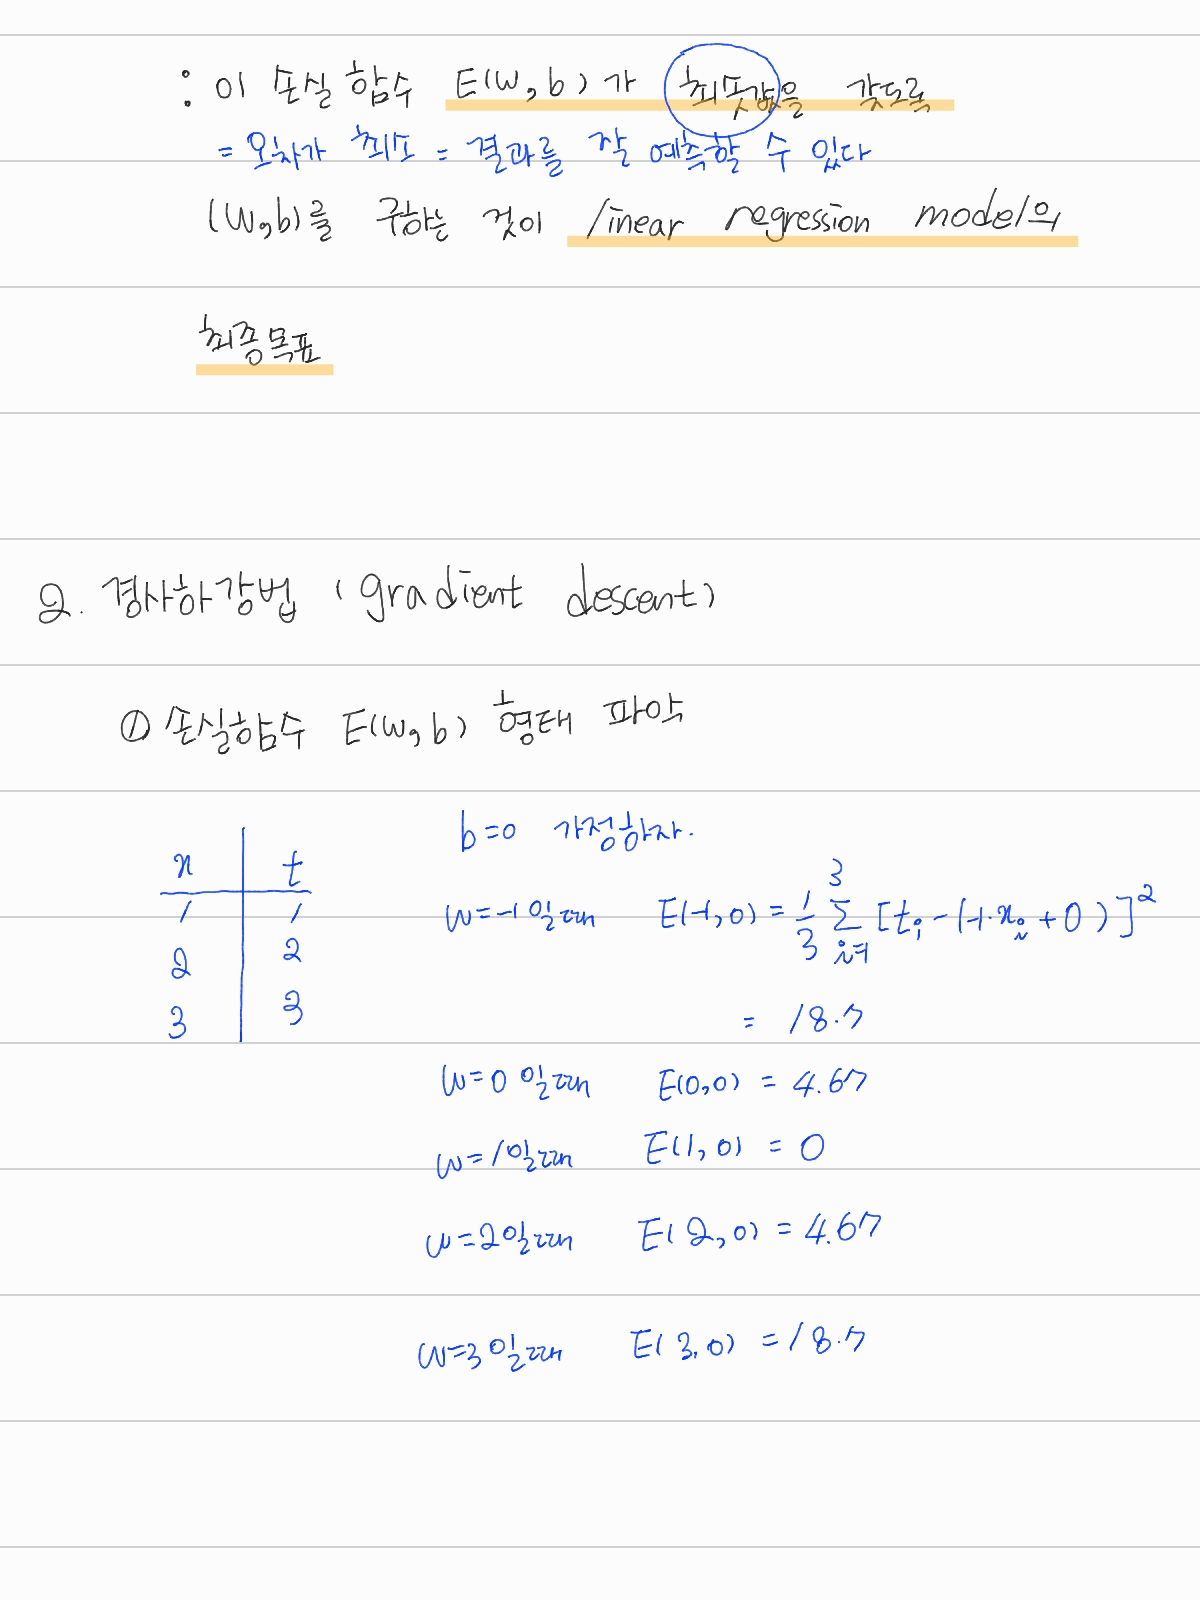 : 이 손실 함수 E(W, b) 가 최솟값을 갖도록
= 오차가 최소 = 결과를 잘 예측할 수 있다
(W, b)를 구하는 것이 linear regression model의
최종목표
2. 경사하강법 (gradient descent)
① 손실함수 E(W, b) 형태 파악
x t
1 1
2 2
3 3
b=0 가정하자.
w=-1 일때 E(-1, 0) = 1/3 3 Σ i=1 [t_i - (-1·x_i + 0)]²
= 18.7
w=0 일때 E(0,0) = 4.67
w=1일때 E(1, 0) = 0
w=2일때 E(2, 0) = 4.67
w=3일때 E(3, 0) = 18.7